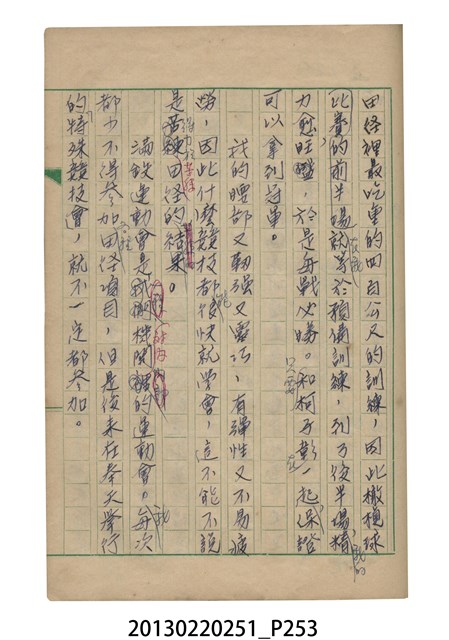 田徑裡最吃重的四百公尺的訓練，因此橄欖球
比賽的前半場就等於預備訓練，到了後半場精
我的
力愈旺盛，於是每戰必勝。和柯子彰一起保證
只要
在
可以拿到冠軍。
我的腰部又軔强又靈巧，有彈性又不易疲
勞，因此什麼競技都能很快就學會，這不能不說
是苦練田徑的結果。
滿鉄運動會是我機関裡的運動會，每次
我
都少不得參加田徑項目，但是後來在奉天舉行
的特殊競技會，就不一定都參加。
20130220251_P253